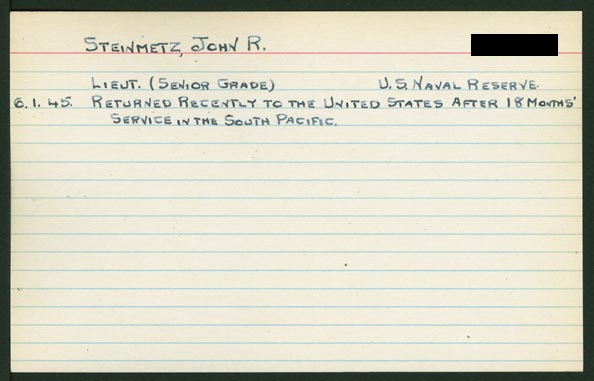 STEINMETZ, JOHN R.
LIEUT. (SENIOR GRADE) U.S. NAVAL RESERVE.
6.1.45. RETURNED RECENTLY TO THE UNITED STATES AFTER 18 MONTHS'
SERVICE IN THE SOUTH PACIFIC.